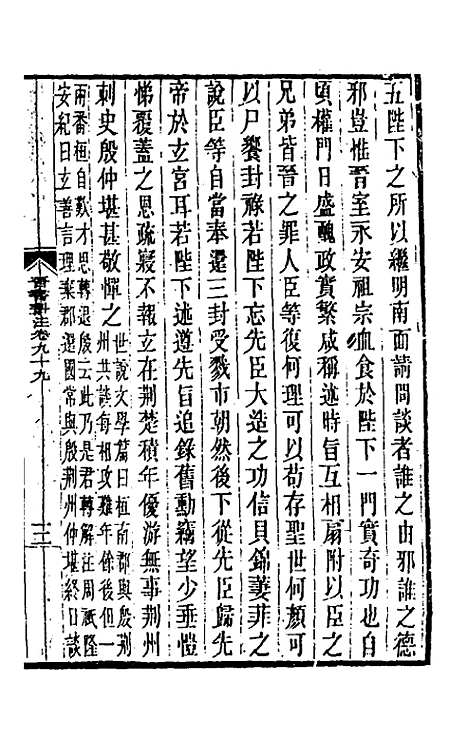 五陛下之所以繼明南面請問談者誰之由邪誰之德
邪豈惟晉室永安祖宗血食於陛下一門實奇功也自
頃權門日盛醜政實繁咸稱述時旨互相扇附以臣之
兄弟皆晉之罪人臣等復何理可以苟存聖世何顏可
以尸饗封祿若陛下忘先臣大造之功信貝錦萋菲之
說臣等自當奉還三封受戮市朝然後下從先臣歸先
帝於玄宮耳若陛下述遵先旨追錄舊勳竊望少垂愷
悌覆蓋之恩疏寢不報玄在荆楚積年優游無事荆州
刺史殷仲堪甚敬憚之
世說文學篇曰桓南郡與殷荆
州共談每相攻難年餘後但一
兩番桓自歎才思轉退殷云此乃是君轉解注周祇隆
安紀曰玄善言理棄郡還國常與殷荆州仲堪終日談
晉書斠注卷九十九
二